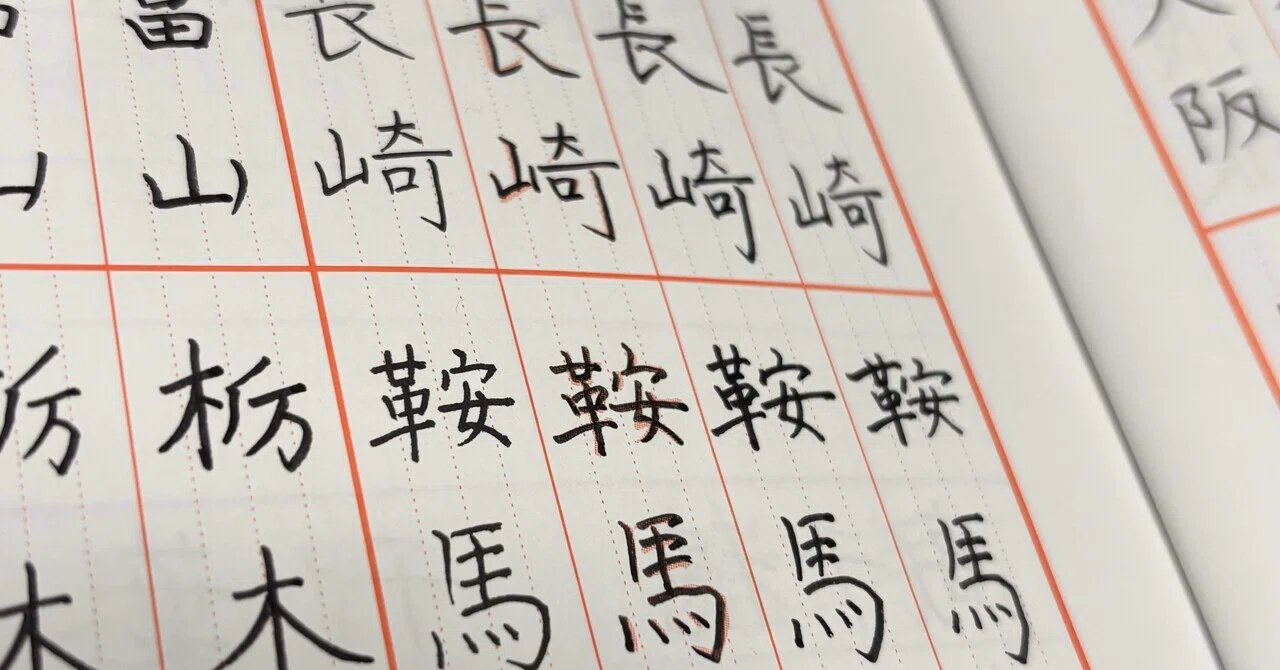 大阪
長崎
長崎
長崎
長崎
富山
鞍馬
鞍馬
鞍馬
鞍馬
栃木
栃木